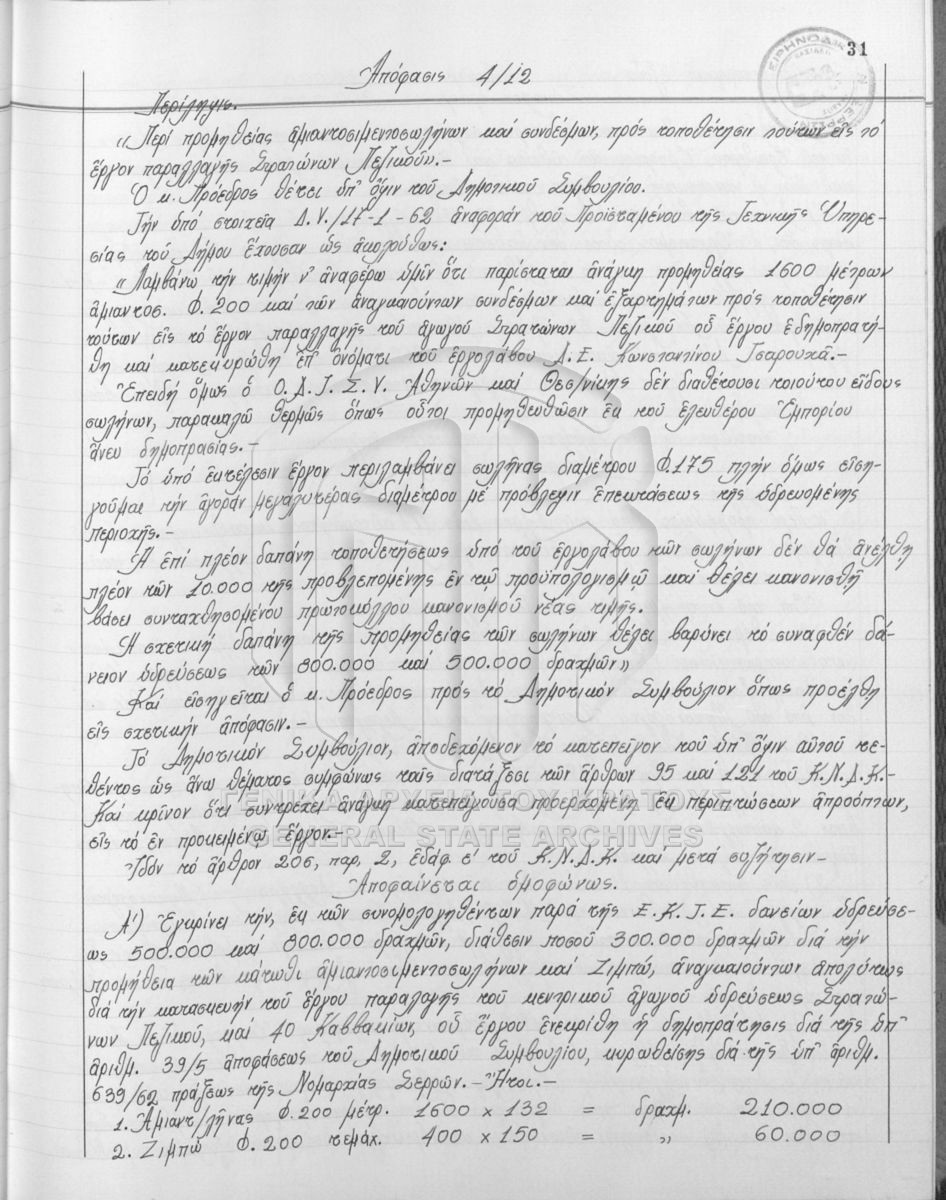 31
Ἀπόφασις 4/12
Περίληψις.
"Περί προμηθείας ἀμιαντοσιμεντοσωλήνων καί συνδέσμων, πρός τοποθέτησιν τούτων εἰς τό
ἔργον παραλλαγῆς Στρατώνων Πεζικοῦ".-
Ὁ κ. Πρόεδρος θέτει ὑπ' ὄψιν τοῦ Δημοτικοῦ Συμβουλίου.
Τήν ὑπό στοιχεῖα Δ.Υ./17-1-62 ἀναφοράν τοῦ Προϊσταμένου τῆς Τεχνικῆς Ὑπηρε-
σίας τοῦ Δήμου ἔχουσαν ὡς ἀκολούθως:
"Λαμβάνω τήν τιμήν ν' ἀναφέρω ὑμῖν ὅτι παρίσταται ἀνάγκη προμηθείας 1600 μέτρων
ἀμιαντοσ. Φ.200 καί τῶν ἀναγκαιούντων συνδέσμων καί ἐξαρτημάτων πρός τοποθέτησιν
τούτων εἰς τό ἔργον παραλλαγῆς τοῦ ἀγωγοῦ Στρατώνων Πεζικοῦ οὗ ἔργου ἐδημοπρατή-
θη καί κατεκυρώθη ἐπ' ὀνόματι τοῦ ἐργολάβου Δ.Ε. Κωνσταντίνου Τσαρουχᾶ.-
Ἐπειδή ὅμως ὁ Ο.Δ.Ι.Σ.Υ. Ἀθηνῶν καί Θεσ/νίκης δέν διαθέτουσι τοιούτου εἴδους
σωλήνων, παρακαλῶ θερμῶς ὅπως οὗτοι προμηθευθῶσιν ἐκ τοῦ ἐλευθέρου Ἐμπορίου
ἄνευ δημοπρασίας.-
Τό ὑπό ἐκτέλεσιν ἔργον περιλαμβάνει σωλῆνας διαμέτρου Φ.175 πλήν ὅμως εἰση-
γοῦμαι τήν ἀγοράν μεγαλυτέρας διαμέτρου μέ πρόβλεψιν ἐπεκτάσεως τῆς ὑδρευομένης
περιοχῆς.-
Ἡ ἐπί πλέον δαπάνη τοποθετήσεως ὑπό τοῦ ἐργολάβου τῶν σωλήνων δέν θά ἀνέλθη
πλέον τῶν 10.000 τῆς προβλεπομένης ἐν τῷ προϋπολογισμῷ καί θέλει κανονισθῆ
βάσει συνταχθησομένου πρωτοκόλλου κανονισμοῦ νέας τιμῆς.
Ἡ σχετική δαπάνη τῆς προμηθείας τῶν σωλήνων θέλει βαρύνει τό συναφθέν δά-
νειον ὑδρεύσεως τῶν 800.000 καί 500.000 δραχμῶν"
Καί εἰσηγεῖται ὁ κ. Πρόεδρος πρός τό Δημοτικόν Συμβούλιον ὅπως προέλθη
εἰς σχετικήν ἀπόφασιν.-
Τό Δημοτικόν Συμβούλιον, ἀποδεχόμενον τό κατεπεῖγον τοῦ ὑπ' ὄψιν αὐτοῦ τε-
θέντος ὡς ἄνω θέματος συμφώνως ταῖς διατάξεσι τῶν ἄρθρων 95 καί 121 τοῦ Κ.Ν.Δ.Κ.-
Καί κρῖνον ὅτι συντρέχει ἀνάγκη κατεπείγουσα προερχομένη ἐκ περιπτώσεων ἀπροόπτων,
εἰς τό ἐν προκειμένῳ ἔργον.-
Ἰδόν τό ἄρθρον 206, παρ, 2, ἐδάφ. ε' τοῦ Κ.Ν.Δ.Κ. καί μετά συζήτησιν-
Ἀποφαίνεται ὁμοφώνως.
Α') Ἐγκρίνει τήν, ἐκ τῶν συνομολογηθέντων παρά τῆς Ε.Κ.Τ.Ε. δανείων ὑδρεύσε-
ως 500.000 καί 800.000 δραχμῶν, διάθεσιν ποσοῦ 300.000 δραχμῶν διά τήν
προμήθεια τῶν κάτωθι ἀμιαντοσιμεντοσωλήνων καί Ζιμπώ, ἀναγκαιούντων ἀπολύτως
διά τήν κατασκευήν τοῦ ἔργου παραλαγῆς τοῦ κεντρικοῦ ἀγωγοῦ ὑδρεύσεως Στρατώ-
νων Πεζικοῦ, καί 40 Καββακίων, οὗ ἔργου ἐνεκρίθη ἡ δημοπράτησις διά τῆς ὑπ'
ἀριθμ. 39/5 ἀποφάσεως τοῦ Δημοτικοῦ Συμβουλίου, κυρωθείσης διά τῆς ὑπ' ἀριθμ.
639/62 πράξεως τῆς Νομαρχίας Σερρῶν.- Ἤτοι.-
1. Ἀμιαντ/λῆνας Φ.200 μέτρ. 1600 × 132 = δραχμ. 210.000
2. Ζιμπώ Φ.200 τεμάχ. 400 × 150 = " 60.000
ΓΕΝΙΚΑ ΑΡΧΕΙΑ ΤΟΥ ΚΡΑΤΟΥΣ
GENERAL STATE ARCHIVES